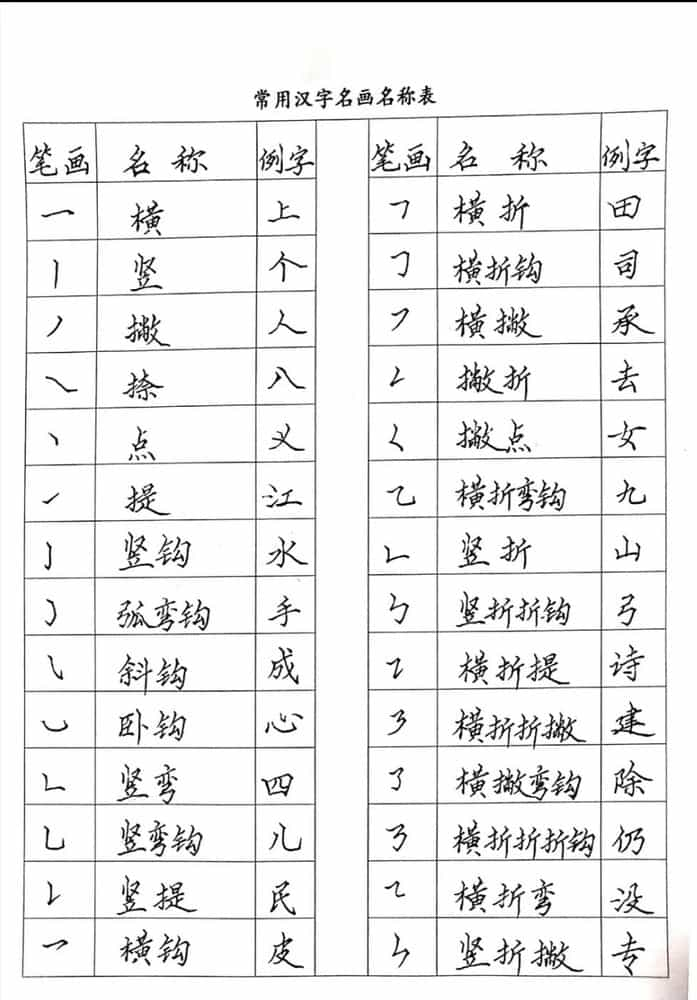 常用汉字名画名称表
笔画 名称 例字 笔画 名称 例字
一 横 上 ㇕ 横折 田
丨 竖 个 ㇆ 横折钩 司
丿 撇 人 ㇇ 横撇 承
㇏ 捺 八 ㇜ 撇折 去
丶 点 义 ㇛ 撇点 女
㇀ 提 江 ㇈ 横折弯钩 九
亅 竖钩 水 ㇗ 竖折 山
㇁ 弧弯钩 手 ㇉ 竖折折钩 弓
㇂ 斜钩 成 ㇊ 横折提 诗
㇃ 卧钩 心 ㇋ 横折折撇 建
㇄ 竖弯 四 ㇌ 横撇弯钩 除
乚 竖弯钩 儿 ㇡ 横折折折钩 仍
㇙ 竖提 民 ㇍ 横折弯 没
乛 横钩 皮 ㇞ 竖折撇 专